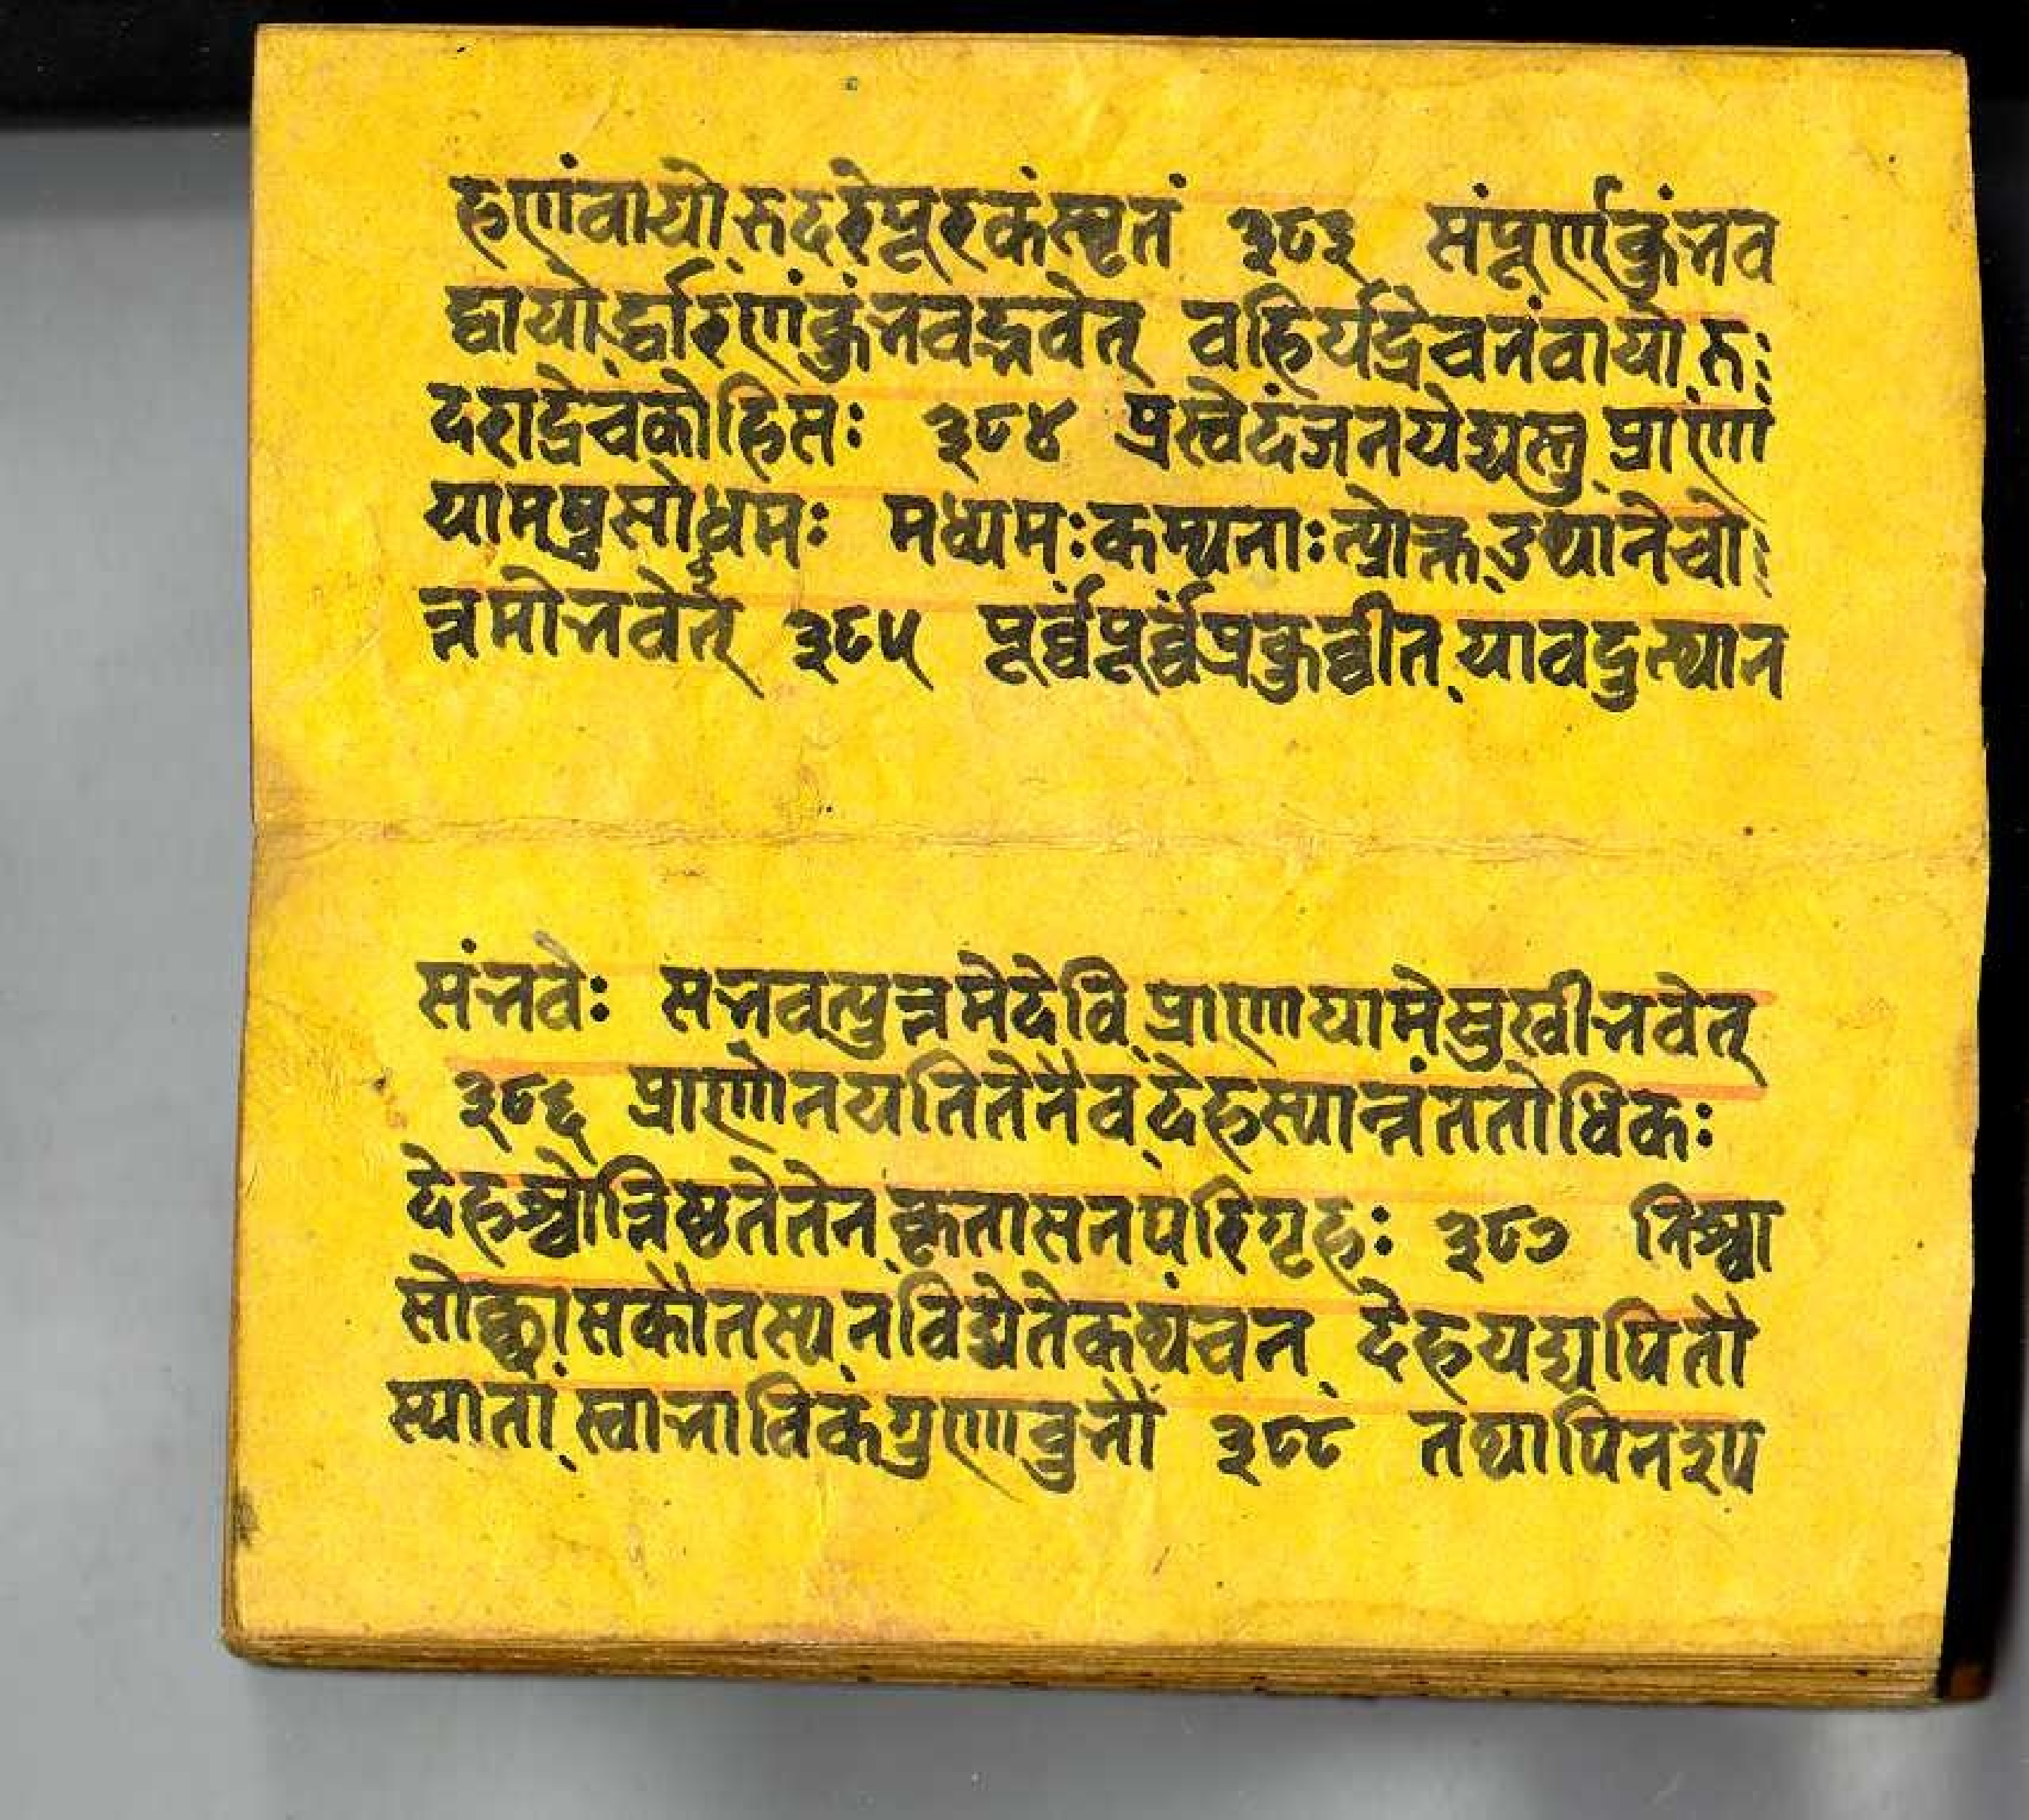 हणंवायोरुदरेपूरकंस्मृतं ३८३ संपूर्णकुंभव
द्वायोर्द्धारणंकुंभवद्भवेत् वहिर्यद्रेचनंवायोरुः
दराद्रेचकोहिसः ३८४ प्रस्वेदंजनयेद्यस्तु प्राणां
यामषुसोधमः मध्यमःकम्पनाःत्प्रोक्त उथानेचोः
त्तमोभवेत् ३८५ पूर्व्वंपूर्व्वंप्रकुर्व्वीत यावदुत्थान
संभवेः सभवत्युत्तमेदेवि प्राणायामेसुखीभवेत्
३८६ प्राणोनयतितेनैव देहस्यान्तंततोधिकः
देहश्चोत्तिष्ठतेतेन कृतासनपरिगृहः ३८७ निश्वा
सोच्छासकौतस्य नविद्येतेकथंचन देहयद्यपितौ
स्यातां स्वाभाविकंगुणावुभौ ३८८ तथापिनश्य